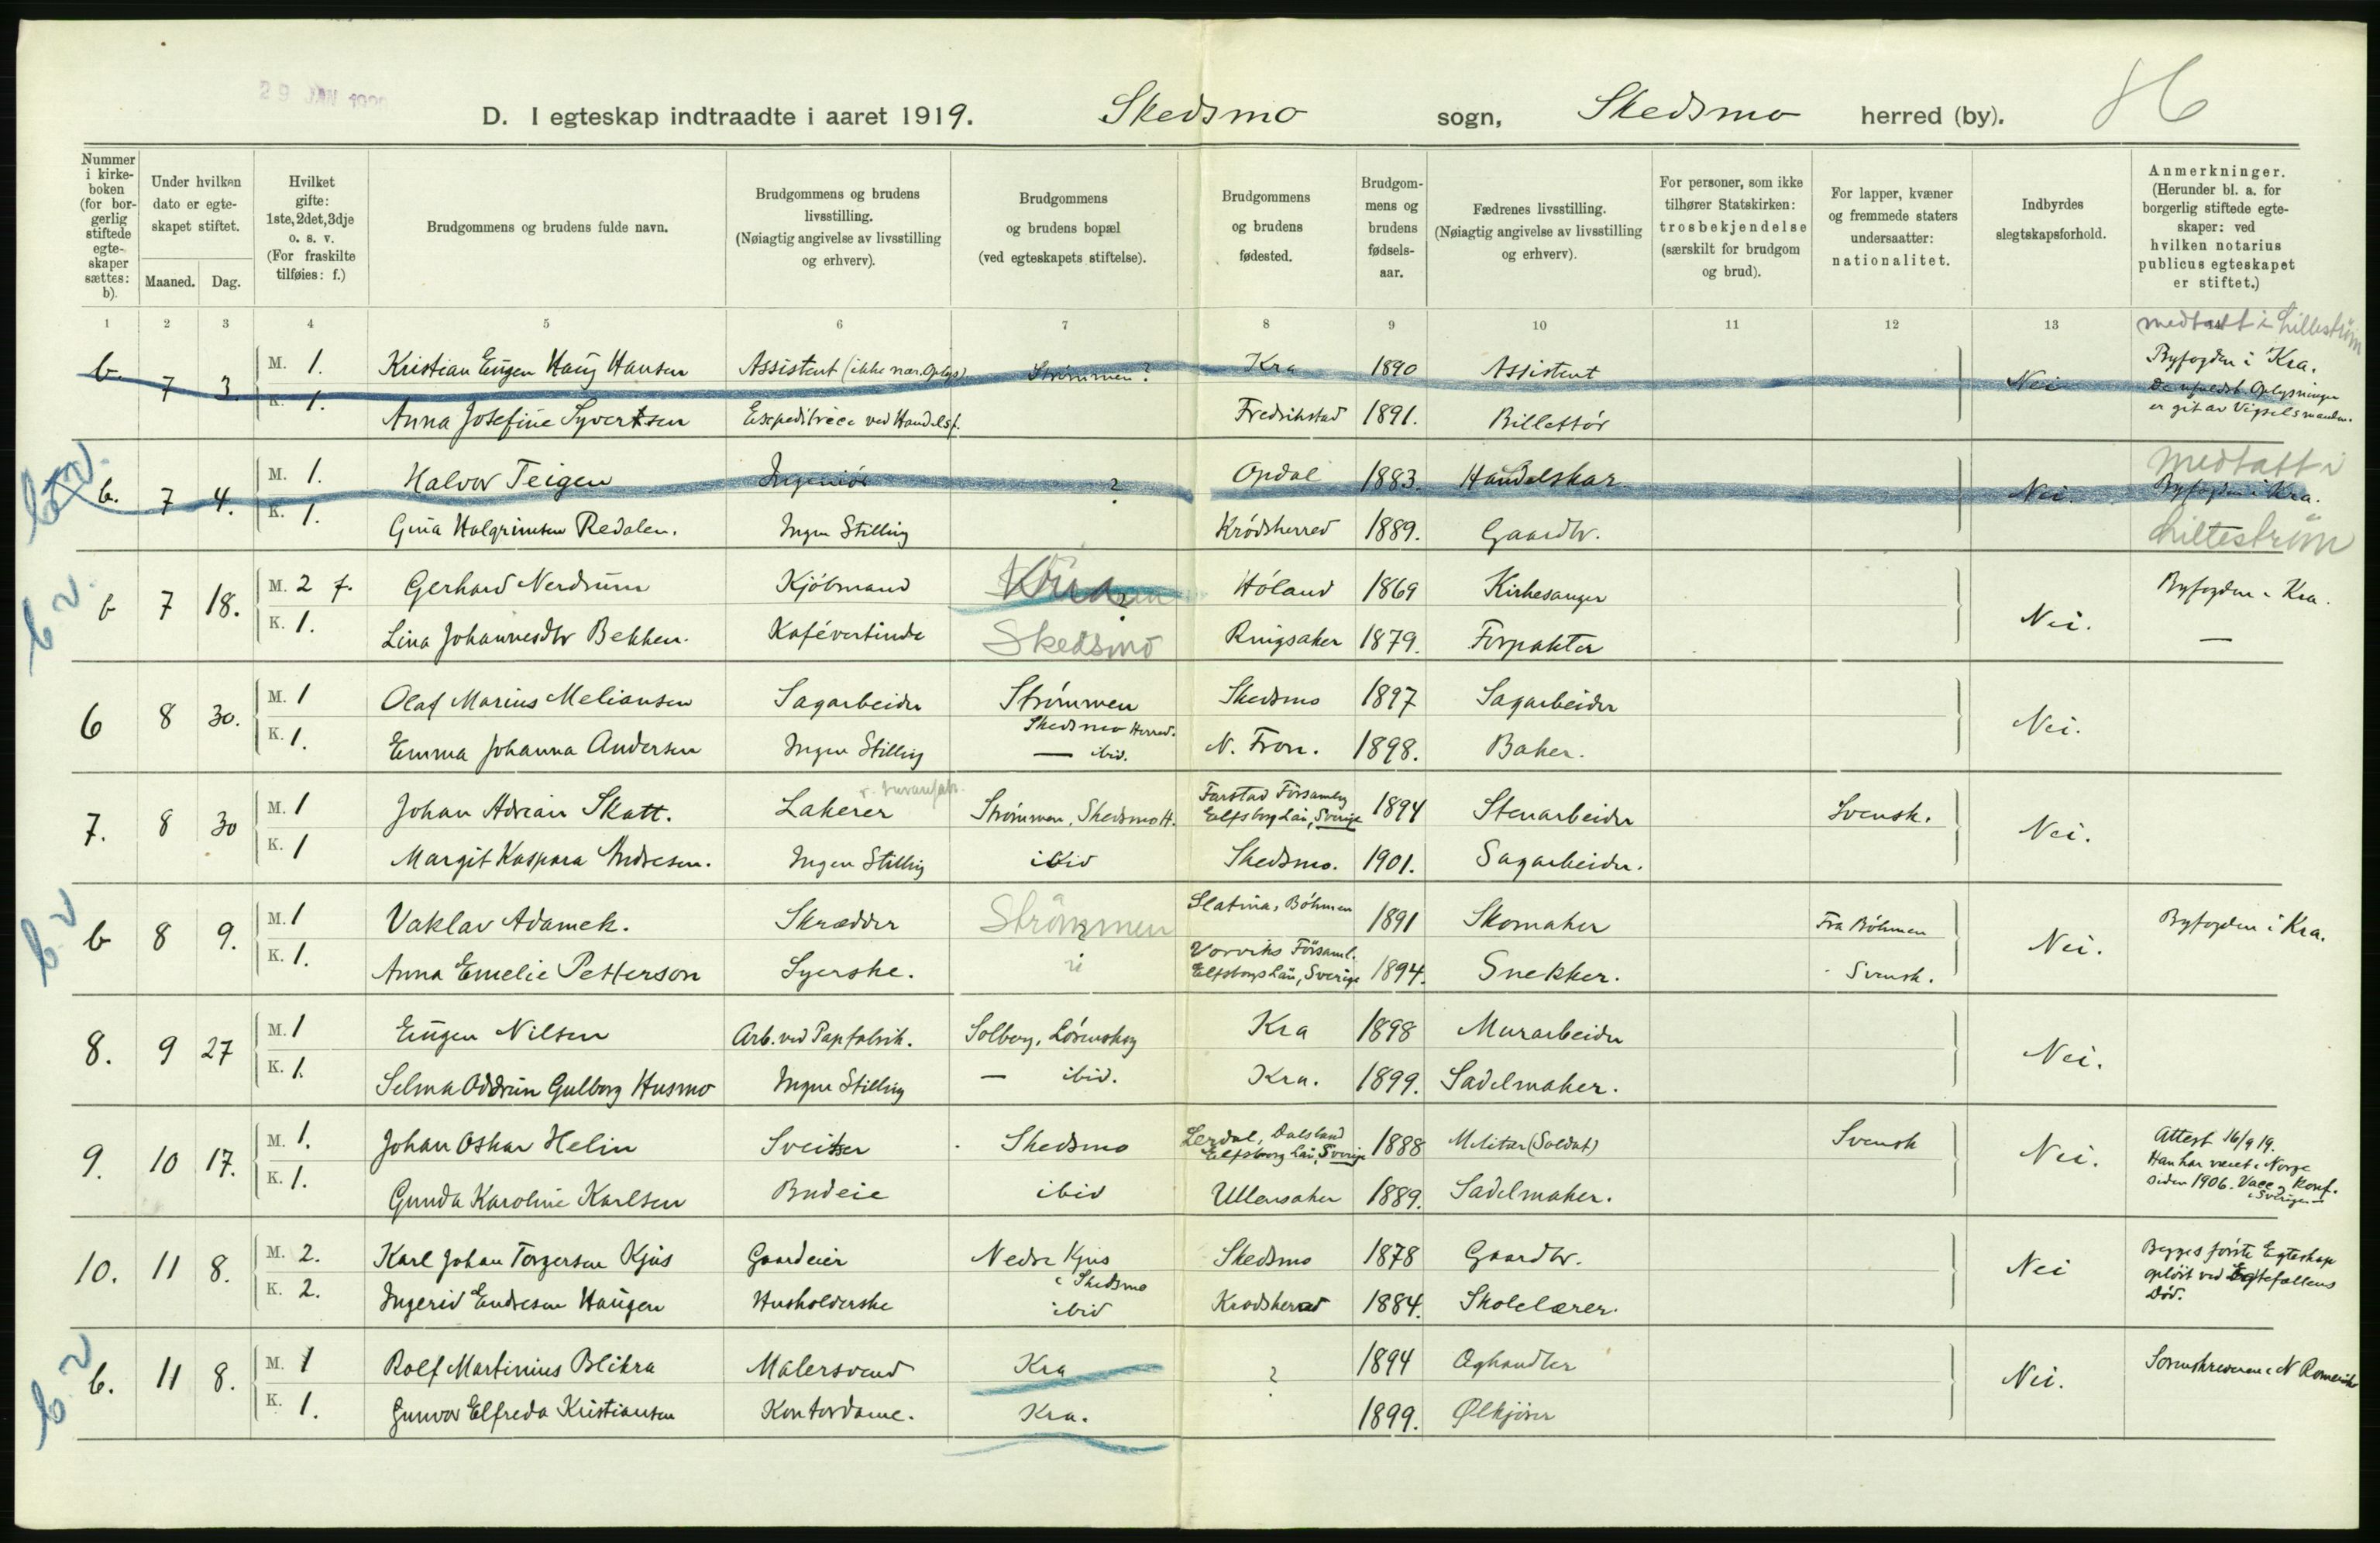 29 JAN 1920
D. I egteskap indtraadte i aaret 1919. Skedsmo sogn, Skedsmo herred (by).
Nummer i kirkeboken (for borgerlig stiftede egteskaper sættes: b).
Under hvilken dato er egteskapet stiftet.
Maaned. Dag.
Hvilket gifte: 1ste, 2det, 3dje o. s. v. (For fraskilte tilføies: f.)
Brudgommens og brudens fulde navn.
Brudgommens og brudens livsstilling. (Nøiagtig angivelse av livsstilling og erhverv).
Brudgommens og brudens bopæl (ved egteskapets stiftelse).
Brudgommens og brudens fødested.
Brudgommens og brudens fødselsaar.
Fædrenes livsstilling. (Nøiagtig angivelse av livsstilling og erhverv).
For personer, som ikke tilhører Statskirken: trosbekjendelse (særskilt for brudgom og brud).
For lapper, kvæner og fremmede staters undersaatter: nationalitet.
Indbyrdes slegtskapsforhold.
Anmerkninger. (Herunder bl. a. for borgerlig stiftede egteskaper: ved hvilken notarius publicus egteskapet er stiftet.)
1 2 3 4 5 6 7 8 9 10 11 12 13
medtatt i Lilleström
b. 7 3. M. 1. Kristian Eugen Haug Hansen Assistent (ikke nær. Oplys) Strømmen? Kra 1890 Assistent Nei Byfogden i Kra.
K. 1. Anna Josefine Syvertsen Expeditrice ved Handelsf. Fredrikstad 1891. Billettör Oplysninger er git av Vigselsmanden.
b. 7 4. M. 1. Halvor Teigen Ingeniör ? Opdal 1883. Handelskar Nei. medtatt i Byfogden i Kra.
K. 1. Gina Halgrimsen Redalen. Ingen Stilling Krödsherred 1889. Gaardbr. Lilleström
b 7 18. M. 2 f. Gerhard Nerdrum Kjöbmand Kra Höland 1869 Kirkesanger Nei. Byfogden i Kra.
K. 1. Lina Johannesdtr Bekken. Kafévertinde Skedsmo Ringsaker 1879. Forpakter —
6 8 30. M. 1 Olaf Marius Meliansen Sagarbeider Strömmen Skedsmo Herred. Skedsmo 1897 Sagarbeider Nei.
K. 1. Emma Johanna Andersen Ingen Stilling — ibid. N. Fron. 1898. Baker.
7. 8 30 M. 1 Johan Adrian Skatt. Lakerer Strömmen, Skedsmo H. Farstad Församling Elfsborg Län, Sverige 1894 Stenarbeider Svensk. Nei.
K. 1 Margit Kaspara Andresen. Ingen Stilling ibid Skedsmo. 1901. Sagarbeider.
b 8 9. M. 1 Vaklav Adamek. Skrædder Strömmen Slatina, Böhmen 1891 Skomaker Fra Böhmen Nei. Byfogden i Kra.
K. 1. Anna Emelie Petterson Syerske. Vorviks Församl. Elfsborgs Län, Sverige 1894. Snekker. Svensk.
8. 9 27 M. 1 Eugen Nilsen Arb. ved Papfabrik. Solberg, Lörenskog Kra 1898 Murarbeider Nei.
K. 1. Selma Oddrun Gulborg Husmo Ingen Stilling — ibid. Kra. 1899. Sadelmaker.
9. 10 17. M. 1. Johan Oskar Helin Sveitser Skedsmo Lerdal, Dalsland Elfsborg Län, Sverige 1888 Militær (Soldat) Svensk Nei. Attest 16/9 19. Han har været i Norge siden 1906. Vacc. og Konf. i Sverige
K. 1. Gunda Karoline Karlsen Budeie ibid Ullensaker 1889. Sadelmaker.
10. 11 8. M. 2. Karl Johan Torgersen Kjus Gaardeier Nedre Kjus i Skedsmo Skedsmo 1878 Gaardbr. Nei Begges förste Egteskap oplöst ved Egtefællens Död.
K. 2. Ingerid Endresen Haugen Husholderske ibid Krødsherad 1884. Skolelærer.
b. 11 8. M. 1 Rolf Martinius Blikra Malersvend Kra ? 1894 Æghandler Nei. Sorenskriveren i N Romerike
K. 1. Gunvor Elfreda Kristiansen Kontordame. Kra. 1899. Ølkjörer